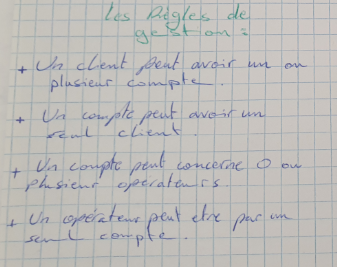 Les Règles de
gestion :
+ Un client peut avoir un ou
plusieur compte.
+ Un compte peut avoir un
seul client.
+ Un compte peut concerne 0 ou
plusieur operateurs.
+ Un opérateur peut etre par un
seul compte.